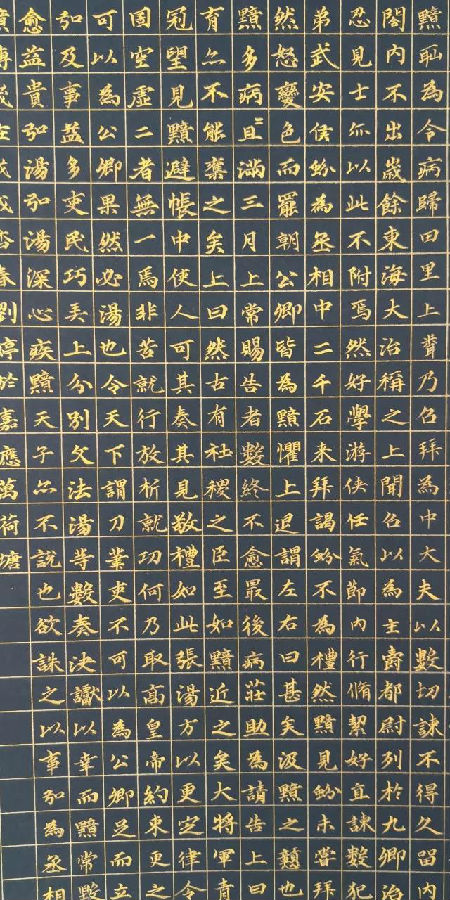 黯耻為令病歸田里上聞乃召拜為中大夫以數切諫不得久留內
閤內不出歲餘東海大治稱之上聞召以為主爵都尉列於九卿治
忍見士亦以此不附焉然好學游俠任氣節內行脩絜好直諫數犯
弟武安侯蚡為丞相中二千石來拜謁蚡不為禮然黯見蚡未嘗拜
然怒變色而罷朝公卿皆為黯懼上退謂左右曰甚矣汲黯之戇也
黯多病且滿三月上常賜告者數終不愈最後病莊助為請告上曰
育亦不能奪之矣上曰然古有社稷之臣至如黯近之矣大將軍青
冠望見黯避帳中使人可其奏其見敬禮如此張湯方以更定律令
固空虛二者無一焉非苦就行放析就功何乃取高皇帝約束更之
可以為公卿果然必湯也令天下謂刀筆吏不可以為公卿足而立
弘及事益多吏民巧弄上分別文法湯等數奏決讞以幸而黯常毀
愈益貴弘湯弘湯深心疾黯天子亦不說也欲誅之以事弘為丞相
春劉停於嘉應萬荷塘